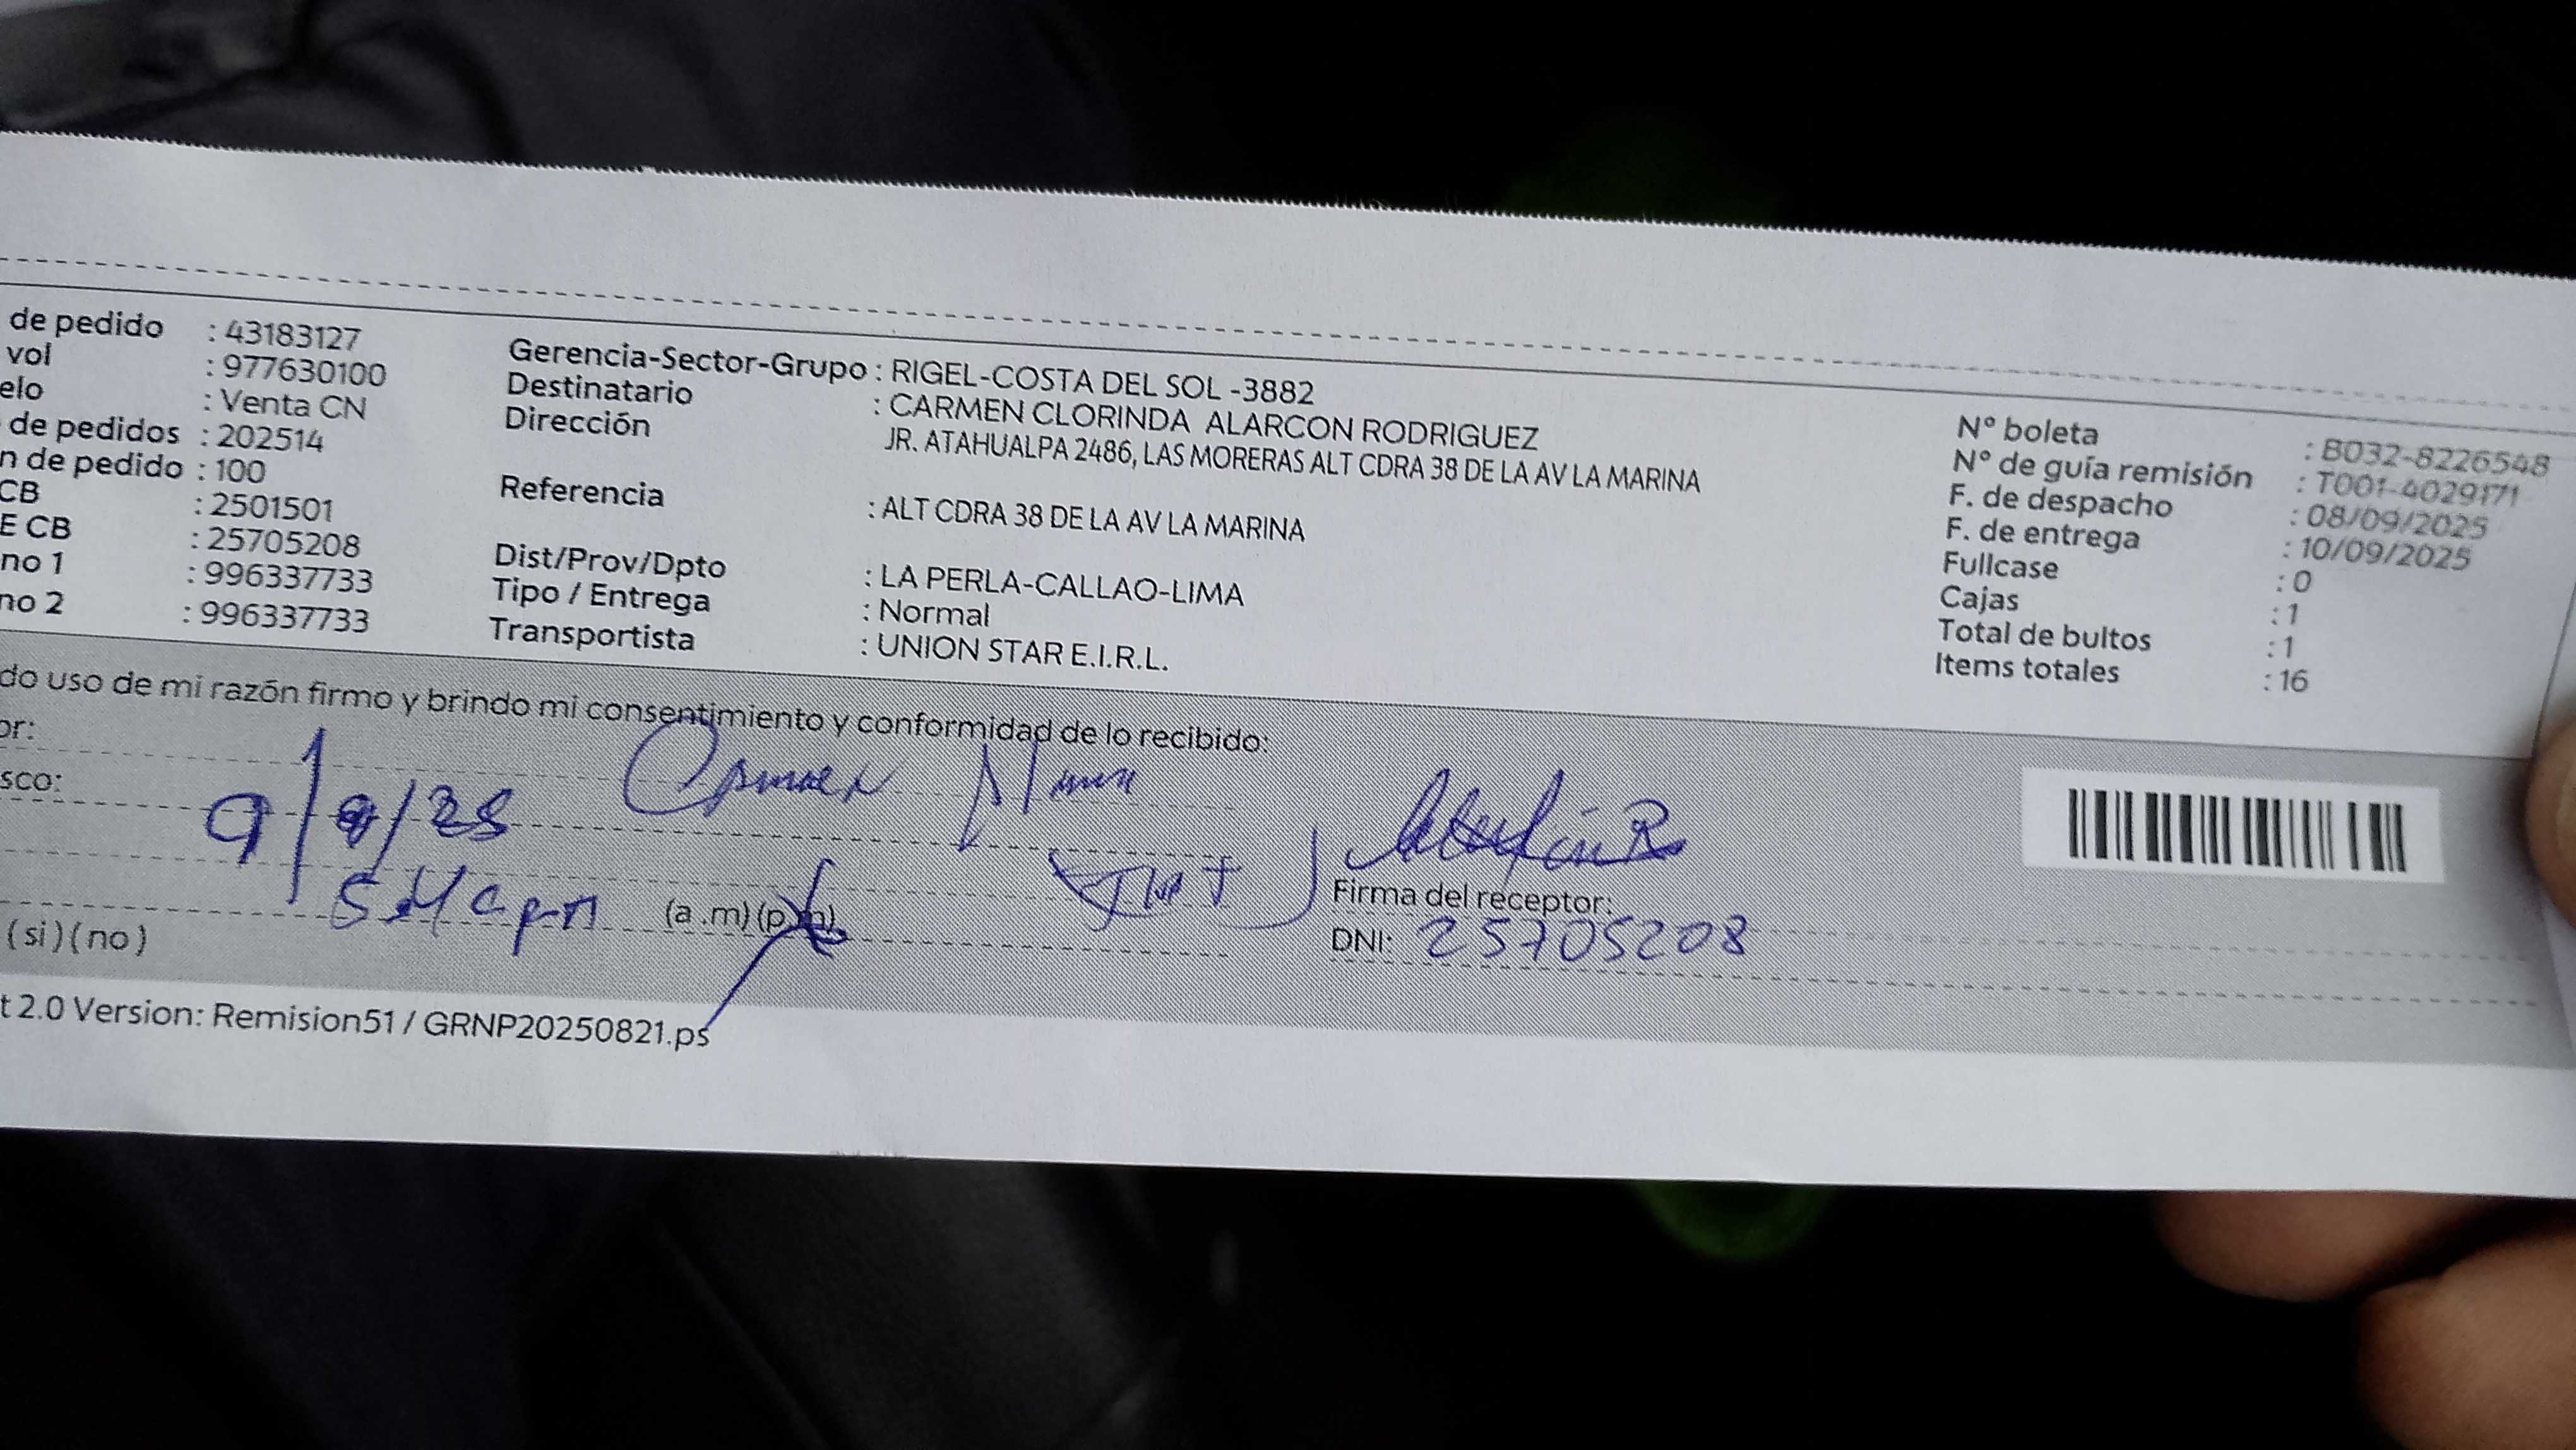 de pedido : 43183127
vol : 977630100
elo : Venta CN
de pedidos : 202514
n de pedido : 100
CB : 2501501
E CB : 25705208
no 1 : 996337733
no 2 : 996337733
Gerencia-Sector-Grupo : RIGEL-COSTA DEL SOL -3882
Destinatario : CARMEN CLORINDA ALARCON RODRIGUEZ
Dirección JR. ATAHUALPA 2486, LAS MORERAS ALT CDRA 38 DE LA AV LA MARINA
Referencia : ALT CDRA 38 DE LA AV LA MARINA
Dist/Prov/Dpto : LA PERLA-CALLAO-LIMA
Tipo / Entrega : Normal
Transportista : UNION STAR E.I.R.L.
Nº boleta : B032-8226548
Nº de guía remisión : T001-4029171
F. de despacho : 08/09/2025
F. de entrega : 10/09/2025
Fullcase : 0
Cajas : 1
Total de bultos : 1
Items totales : 16
do uso de mi razón firmo y brindo mi consentimiento y conformidad de lo recibido:
or: Carmen
sco:
9/9/25
pm (a .m)(p.m)
(si)(no)
Firma del receptor:
DNI: 25705208
t 2.0 Version: Remision51 / GRNP20250821.ps